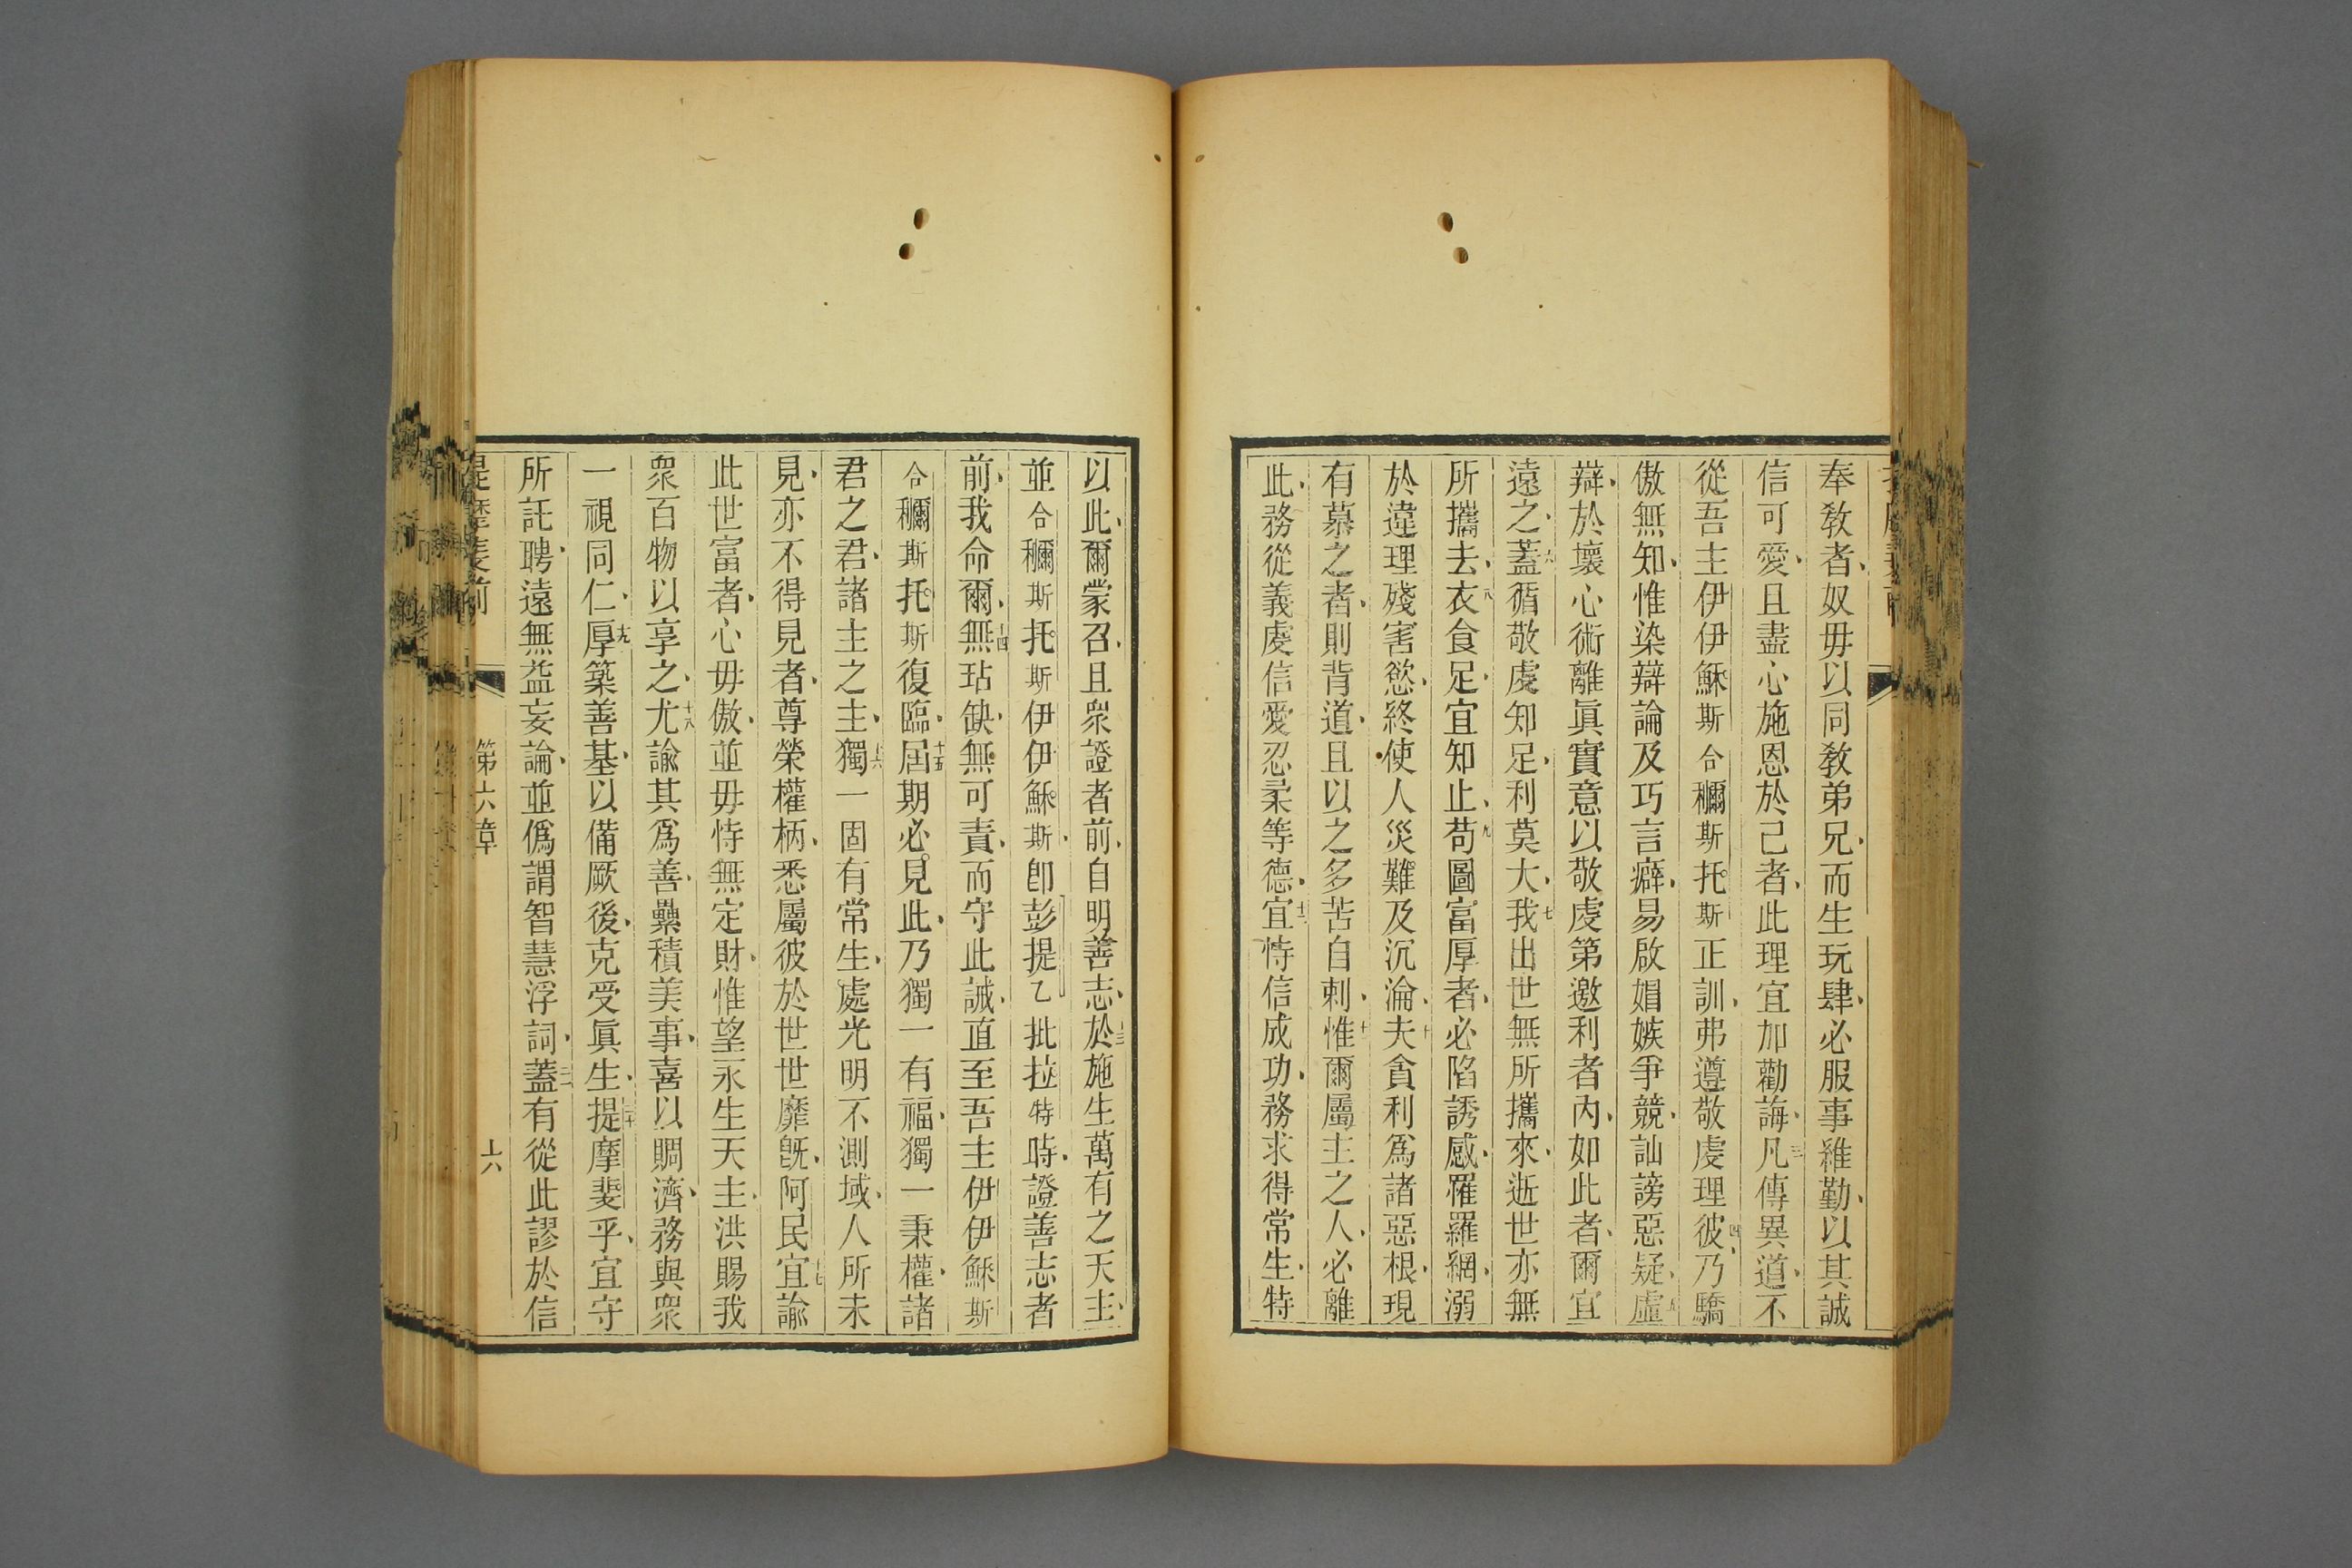 奉教者奴毋以同教弟兄而生玩肆必服事維勤以其誠
信可愛且盡心施恩於己者此理宜加勸誨三凡傳異道不
從吾主伊伊穌斯合穪斯托斯正訓弗遵敬虔理四彼乃驕
傲無知惟染辯論及巧言癖易啟娼嫉爭競訕謗惡疑五虛
辯於壞心術離眞實意以敬虔第邀利者內如此者爾宜
遠之六蓋循敬虔知足利莫大七我出世無所攜來逝世亦無
所攜去八衣食足宜知止九苟圖富厚者必陷誘感罹羅網溺
於違理殘害慾終使人災難及沉淪十夫貪利爲諸惡根現
有慕之者則背道且以之多苦自刺十一惟爾屬主之人必離
此務從義虔信愛忍柔等德十二宜恃信成功務求得常生特
以此爾蒙召且衆證者前自明善志十三於施生萬有之天主
並合穪斯托斯伊伊穌斯卽彭提乙批拉特時證善志者
前我命爾十四無玷缺無可責而守此誡直至吾主伊伊穌斯
合穪斯托斯復臨十五屆期必見此乃獨一有福獨一秉權諸
君之君諸主之主十六獨一固有常生處光明不測域人所未
見亦不得見者尊榮權柄悉屬彼於世世靡旣阿民十七宜諭
此世富者心毋傲並毋恃無定財惟望永生天主洪賜我
衆百物以享之十八尤諭其爲善纍積美事喜以賙濟務與衆
一視同仁十九厚築善基以備厥後克受眞生二十提摩斐乎宜守
所託聘遠無益妄論並僞謂智慧浮詞二一蓋有從此謬於信
提摩斐前 第六章 十六